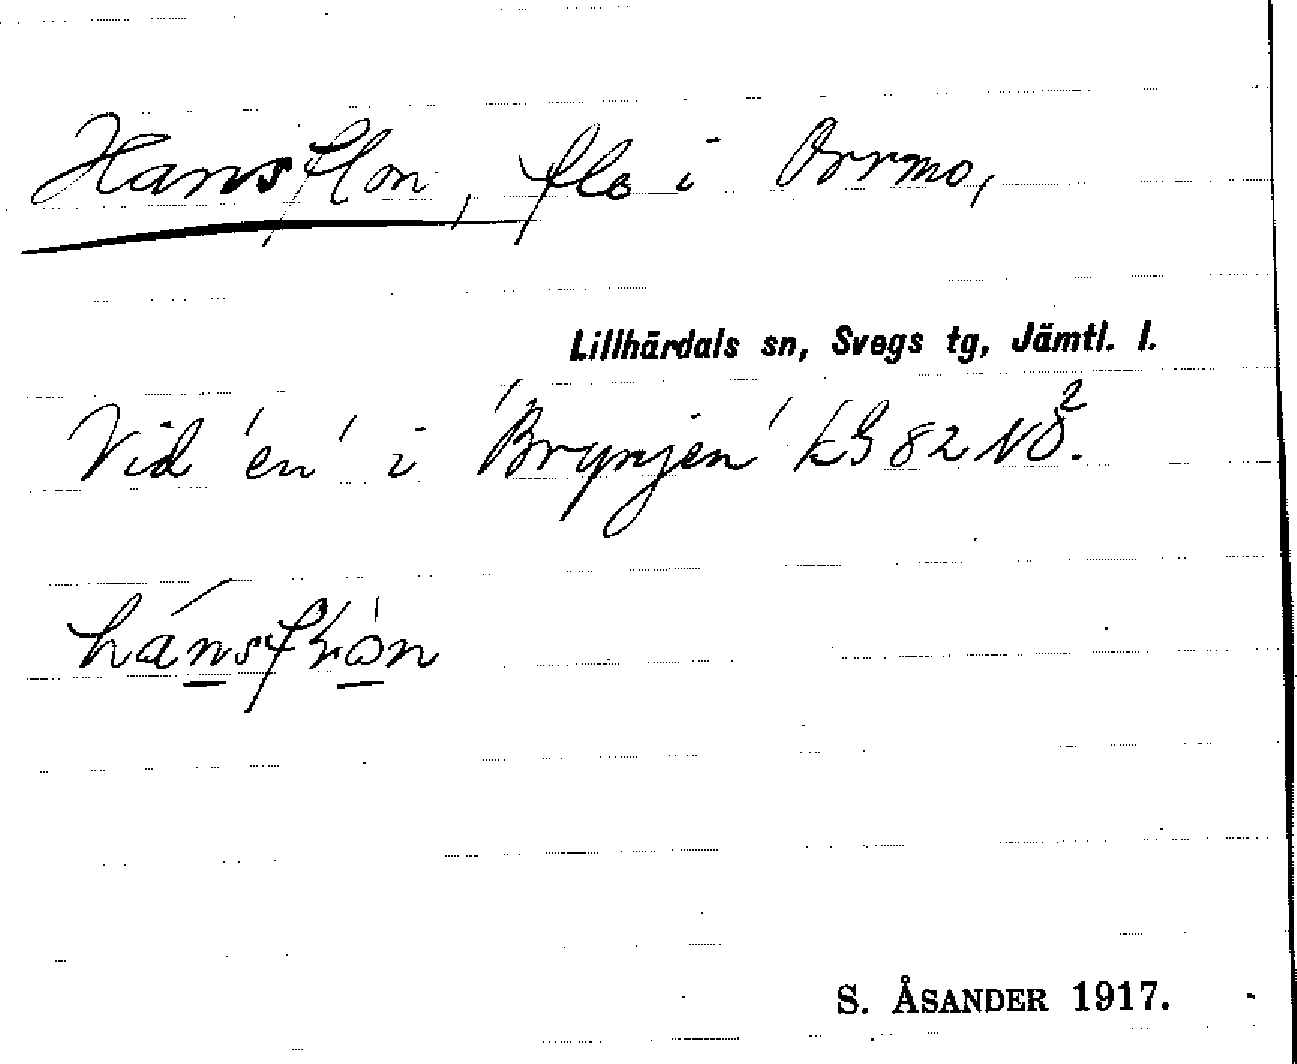 Hansflon, flo i Orrmo,
Lillhärdals sn, Svegs tg, Jämtl. l.
Vid 'en' i 'Brynjen' kG 82 NO².
hánsflon
S. ÅSANDER 1917.